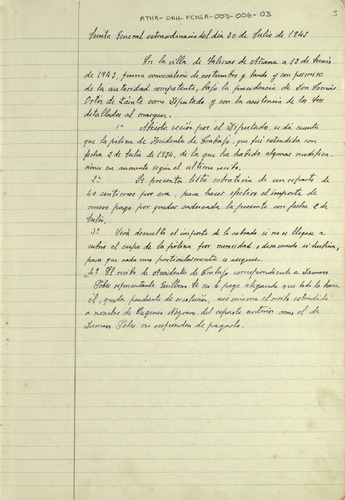 ATHA-DAH-FCHSA-003-006-03
3
Junta General extraordinaria del día 20 de Julio de 1943
En la villa de Salinas de Añana a 12 de Junio
de 1943, previa convocatoria de costumbre y bando y con permiso
de la autoridad competente, bajo la presidencia de Don Tomás
Ortiz de Zárate como Diputado y con la asistencia de los Sres
detallados al margen.
1º Abierta sesión por el Diputado, se dió cuenta
que la póliza de Accidentes de Trabajo, que fué extendida con
fecha 2 de Julio de 1934, de la que ha habido algunas modifica-
ciones en aumento según el último recibo.
2º Se presenta lista cobratoria de un reparto de
40 céntimos por era, para hacer efectivo el importe de
nuevo pago por quedar caducada la presente con fecha 2 de
Julio.
3º Será devuelto el importe de lo cobrado si no se llegase a
cubrir el cupo de la póliza por morosidad,
para que cada uno particularmente se asegure.
4º El recibo de Accidentes de Trabajo correspondiente a Damaso
Pobes representante Guillermo no lo paga alegando que todo lo hace
él, queda pendiente de resolución, nos mismo el recibo extendido
a nombre de Eugenio del reparto anterior como el de
Damaso Pobes no responden de pagarlo.